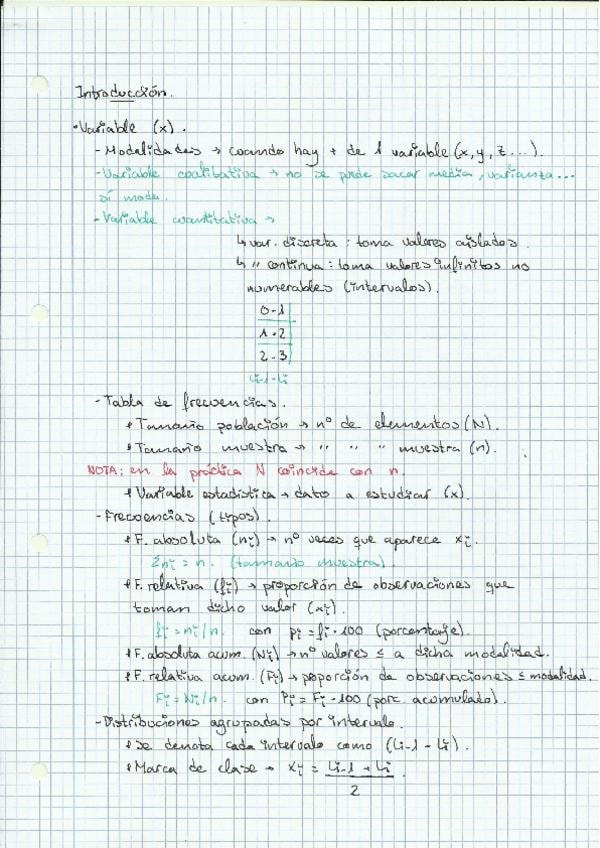 Introducción.
- Variable (x).
- Modalidades → cuando hay + de 1 variable (x, y, z...).
- Variable cualitativa → no se puede sacar media, varianza...
sí moda.
- Variable cuantitativa →
↳ var. discreta: toma valores aislados.
↳ " continua: toma valores infinitos no
numerables (intervalos).
0-1
1-2
2-3
Li-1-Li
- Tabla de frecuencias.
* Tamaño población → nº de elementos (N).
* Tamaño muestra → " " " muestra (n).
NOTA: en la práctica N coincide con n.
* Variable estadística → dato a estudiar (x).
- Frecuencias (tipos).
* F. absoluta (ni) → nº veces que aparece xi.
Σni = n. (tamaño muestra).
* F. relativa (fi) → proporción de observaciones que
toman dicho valor (xi).
fi = ni/n. con pi = fi · 100 (porcentaje).
* F. absoluta acum. (Ni) → nº valores ≤ a dicha modalidad.
* F. relativa acum. (Fi) → poporción de observaciones ≤ modalidad.
Fi = Ni/n. con Pi = Fi · 100 (porc. acumulado).
- Distribuciones agrupadas por intervalo.
* Se denota cada intervalo como (Li-1 - Li).
* Marca de clase → xi = Li-1 + Li.
2